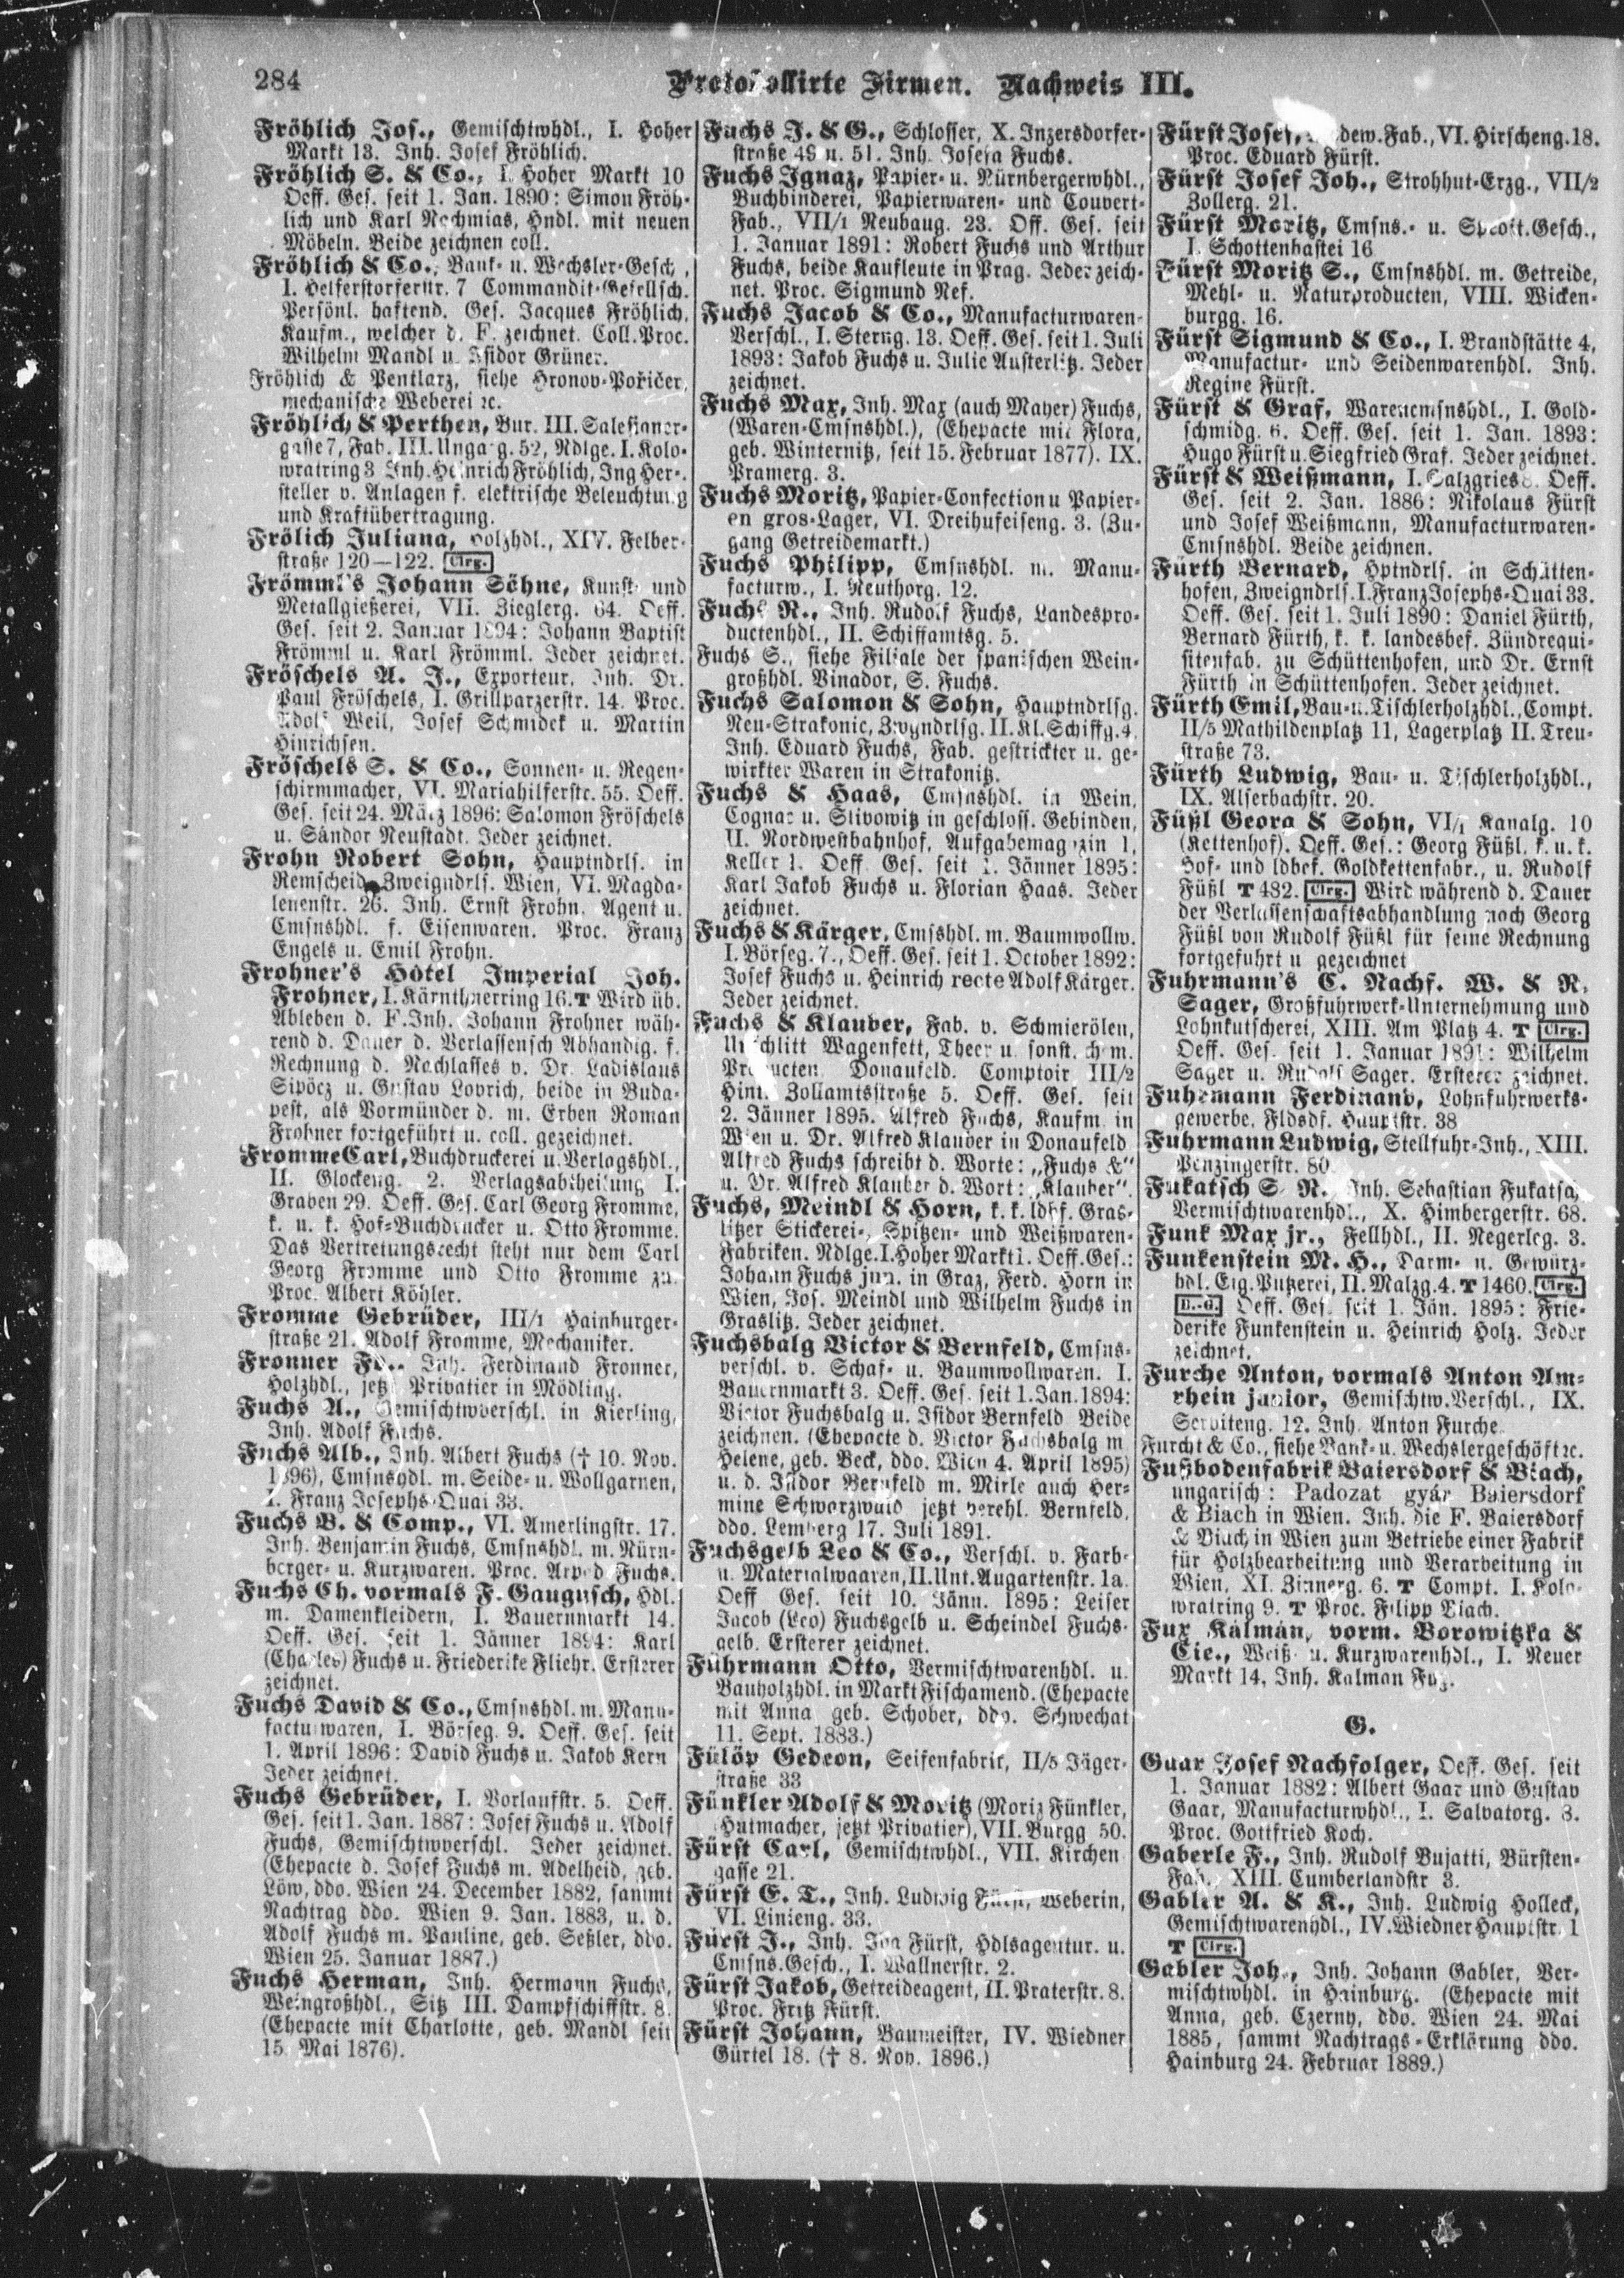 284
Protokollirte Firmen. Nachweis III.
Fröhlich Jos., Gemischtwhdl., I. Hoher
Markt 13. Inh. Josef Fröhlich.
Fröhlich S. & Co., I. Hoher Markt 10
Oeff. Ges. seit 1. Jan. 1890: Simon Fröh-
lich und Karl Nachmias, Hndl. mit neuen
Möbeln. Beide zeichnen coll.
Fröhlich & Co., Bank- u. Wechsler-Gesch.,
I. Helferstorferstr. 7 Commandit-Gesellsch.
Persönl. haftend. Ges. Jacques Fröhlich,
Kaufm., welcher d. F. zeichnet. Coll. Proc.
Wilhelm Mandl u. Isidor Grüner.
Fröhlich & Pentlarz, siehe Hronov-Pořičer,
mechanische Weberei ꝛc.
Fröhlich & Perthen, Bur. III. Salesianer-
gasse 7, Fab. III. Ungarg. 52, Ndlge. I. Kolo-
wratring 3 Inh. Heinrich Fröhlich, Ing Her-
steller v. Anlagen f. elektrische Beleuchtung
und Kraftübertragung.
Frölich Juliana, Holzhdl., XIV. Felber-
straße 120—122. Clrg.
Frömml's Johann Söhne, Kunst- und
Metallgießerei, VII. Zieglerg. 64. Oeff.
Ges. seit 2. Januar 1894: Johann Baptist
Frömml u. Karl Frömml. Jeder zeichnet.
Fröschels A. J., Exporteur, Inh. Dr.
Paul Fröschels, I. Grillparzerstr. 14. Proc.
Adolf Weil, Josef Schmidek u. Martin
Hinrichsen.
Fröschels S. & Co., Sonnen- u. Regen-
schirmmacher, VI. Mariahilferstr. 55. Oeff.
Ges. seit 24. März 1896: Salomon Fröschels
u. Sándor Neustadt. Jeder zeichnet.
Frohn Robert Sohn, Hauptndrls. in
Remscheid Zweigndrls. Wien, VI. Magda-
lenenstr. 26. Inh. Ernst Frohn, Agent u.
Cmsnshdl. f. Eisenwaren. Proc. Franz
Engels u. Emil Frohn.
Frohner's Hôtel Imperial Joh.
Frohner, I. Kärnthnerring 16. T Wird üb.
Ableben d. F. Inh. Johann Frohner wäh-
rend d. Dauer d. Verlassensch Abhandlg. f.
Rechnung d. Nachlasses v. Dr. Ladislaus
Sipöcz u. Gustav Lovrich, beide in Buda-
pest, als Vormünder d. m. Erben Roman
Frohner fortgeführt u. coll. gezeichnet.
Fromme Carl, Buchdruckerei u. Verlagshdl.,
II. Glockeng. 2. Verlagsabtheilung I.
Graben 29. Oeff. Ges. Carl Georg Fromme,
k. u. k. Hof-Buchdrucker u. Otto Fromme.
Das Vertretungsrecht steht nur dem Carl
Georg Fromme und Otto Fromme zu.
Proc. Albert Köhler.
Fromme Gebrüder, III/1 Hainburger-
straße 21. Adolf Fromme, Mechaniker.
Fronner Fd., Inh. Ferdinand Fronner,
Holzhdl., jetzt Privatier in Mödling.
Fuchs A., Gemischtwverschl. in Kierling,
Inh. Adolf Fuchs.
Fuchs Alb., Inh. Albert Fuchs († 10. Nov.
1896), Cmsnshdl. m. Seide- u. Wollgarnen,
I. Franz Josephs-Quai 33.
Fuchs B. & Comp., VI. Amerlingstr. 17.
Inh. Benjamin Fuchs, Cmsnshdl. m. Nürn-
berger- u. Kurzwaren. Proc. Arpad Fuchs.
Fuchs Ch. vormals F. Gaugusch, Hdl.
m. Damenkleidern, I. Bauernmarkt 14.
Oeff. Ges. seit 1. Jänner 1894: Karl
(Charles) Fuchs u. Friederike Fliehr. Ersterer
zeichnet.
Fuchs David & Co., Cmsnshdl. m. Manu-
facturwaren, I. Börseg. 9. Oeff. Ges. seit
1. April 1896: David Fuchs u. Jakob Kern
Jeder zeichnet.
Fuchs Gebrüder, I. Vorlaufstr. 5. Oeff.
Ges. seit 1. Jan. 1887: Josef Fuchs u. Adolf
Fuchs, Gemischtwverschl. Jeder zeichnet.
(Ehepacte d. Josef Fuchs m. Adelheid, geb.
Löw, ddo. Wien 24. December 1882, sammt
Nachtrag ddo. Wien 9. Jan. 1883, u. d.
Adolf Fuchs m. Pauline, geb. Seßler, ddo.
Wien 25. Januar 1887.)
Fuchs Herman, Inh. Hermann Fuchs,
Weingroßhdl., Sitz III. Dampfschiffstr. 8.
(Ehepacte mit Charlotte, geb. Mandl seit
15. Mai 1876).
Fuchs J. & G., Schlosser, X. Inzersdorfer-
straße 49 u. 51. Inh. Josefa Fuchs.
Fuchs Ignaz, Papier- u. Nürnbergerwhdl.,
Buchbinderei, Papierwaren- und Couvert-
Fab., VII/1 Neubaug. 23. Off. Ges. seit
1. Januar 1891: Robert Fuchs und Arthur
Fuchs, beide Kaufleute in Prag. Jeder zeich-
net. Proc. Sigmund Nef.
Fuchs Jacob & Co., Manufacturwaren-
Verschl., I. Sterng. 13. Oeff. Ges. seit 1. Juli
1893: Jakob Fuchs u. Julie Austerlitz. Jeder
zeichnet.
Fuchs Max, Inh. Max (auch Mayer) Fuchs,
(Waren-Cmsnshdl.), (Ehepacte mit Flora,
geb. Winternitz, seit 15. Februar 1877). IX.
Pramerg. 3.
Fuchs Moritz, Papier-Confection u Papier-
en gros-Lager, VI. Dreihufeiseng. 3. (Zu-
gang Getreidemarkt.)
Fuchs Philipp, Cmsnshdl. m. Manu-
facturw., I. Neuthorg. 12.
Fuchs R., Inh. Rudolf Fuchs, Landespro-
ductenhdl., II. Schiffamtsg. 5.
Fuchs S., siehe Filiale der spanischen Wein-
großhdl. Vinador, S. Fuchs.
Fuchs Salomon & Sohn, Hauptndrlsg.
Neu-Strakonic, Zwgndrlsg. II. Kl. Schiffg. 4.
Inh. Eduard Fuchs, Fab. gestrickter u. ge-
wirkter Waren in Strakonitz.
Fuchs & Haas, Cmsnshdl. in Wein,
Cognac u. Slivowitz in geschloss. Gebinden,
II. Nordwestbahnhof, Aufgabemagazin 1,
Keller 1. Oeff. Ges. seit 1. Jänner 1895:
Karl Jakob Fuchs u. Florian Haas. Jeder
zeichnet.
Fuchs & Kärger, Cmsshdl. m. Baumwollw.
I. Börseg. 7., Oeff. Ges. seit 1. October 1892:
Josef Fuchs u. Heinrich recte Adolf Kärger.
Jeder zeichnet.
Fuchs & Klauber, Fab. v. Schmierölen,
Unschlitt Wagenfett, Theer u. sonst. chem.
Producten. Donaufeld. Comptoir III/2
Hint. Zollamtsstraße 5. Oeff. Ges. seit
2. Jänner 1895. Alfred Fuchs, Kaufm. in
Wien u. Dr. Alfred Klauber in Donaufeld
Alfred Fuchs schreibt d. Worte: „Fuchs &“
u. Dr. Alfred Klauber d. Wort: „Klauber“.
Fuchs, Meindl & Horn, k. k. ldbf. Gras-
litzer Stickerei-, Spitzen- und Weißwaren-
Fabriken. Ndlge. I. Hoher Markt 1. Oeff. Ges.:
Johann Fuchs jun. in Graz, Ferd. Horn in
Wien, Jos. Meindl und Wilhelm Fuchs in
Graslitz. Jeder zeichnet.
Fuchsbalg Victor & Bernfeld, Cmsns-
verschl. v. Schaf- u. Baumwollwaren. I.
Bauernmarkt 3. Oeff. Ges. seit 1. Jan. 1894:
Victor Fuchsbalg u. Isidor Bernfeld Beide
zeichnen. (Ehepacte d. Victor Fuchsbalg m
Helene, geb. Beck, ddo. Wien 4. April 1895)
u. d. Isidor Bernfeld m. Mirle auch Her-
mine Schwarzwald jetzt verehl. Bernfeld,
ddo. Lemberg 17. Juli 1891.
Fuchsgelb Leo & Co., Verschl. v. Farb-
u. Materialwaaren, II. Unt. Augartenstr. 1a.
Oeff Ges. seit 10. Jänn. 1895: Leiser
Jacob (Leo) Fuchsgelb u. Scheindel Fuchs-
gelb. Ersterer zeichnet.
Führmann Otto, Vermischtwarenhdl. u.
Bauholzhdl. in Markt Fischamend. (Ehepacte
mit Anna geb. Schober, ddo. Schwechat
11. Sept. 1883.)
Fülöp Gedeon, Seifenfabrik, II/5 Jäger-
straße 33
Fünkler Adolf & Moritz (Moriz Fünkler,
Hutmacher, jetzt Privatier), VII. Burgg 50.
Fürst Carl, Gemischtwhdl., VII. Kirchen
gasse 21.
Fürst E. T., Inh. Ludwig Fürst, Weberin,
VI. Linieng. 33.
Fürst J., Inh. Ida Fürst, Hdlsagentur. u.
Cmsns.Gesch., I. Wallnerstr. 2.
Fürst Jakob, Getreideagent, II. Praterstr. 8.
Proc. Fritz Fürst.
Fürst Johann, Baumeister, IV. Wiedner
Gürtel 18. († 8. Nov. 1896.)
Fürst Josef, Fab., VI. Hirscheng. 18.
Proc. Eduard Fürst.
Fürst Josef Joh., Strohhut-Erzg., VII/2
Zollerg. 21.
Fürst Moritz, Cmsns.- u. Spedit. Gesch.,
I. Schottenbastei 16
Fürst Moritz S., Cmsnshdl. m. Getreide,
Mehl- u. Naturproducten, VIII. Wicken-
burgg. 16.
Fürst Sigmund & Co., I. Brandstätte 4,
Manufactur- und Seidenwarenhdl. Inh.
Regine Fürst.
Fürst & Graf, Warencmsnshdl., I. Gold-
schmidg. 6. Oeff. Ges. seit 1. Jan. 1893:
Hugo Fürst u. Siegfried Graf. Jeder zeichnet.
Fürst & Weißmann, I. Salzgries 8. Oeff.
Ges. seit 2. Jan. 1886: Nikolaus Fürst
und Josef Weißmann, Manufacturwaren-
Cmsnshdl. Beide zeichnen.
Fürth Bernard, Hptndrls. in Schütten-
hofen, Zweigndrls. I. Franz Josephs-Quai 33.
Oeff. Ges. seit 1. Juli 1890: Daniel Fürth,
Bernard Fürth, k. k. landesbef. Zündrequi-
sitenfab. zu Schüttenhofen, und Dr. Ernst
Fürth in Schüttenhofen. Jeder zeichnet.
Fürth Emil, Bau- u. Tischlerholzhdl., Compt.
II/5 Mathildenplatz 11, Lagerplatz II. Treu-
straße 73.
Fürth Ludwig, Bau- u. Tischlerholzhdl.,
IX. Alserbachstr. 20.
Füßl Georg & Sohn, VI/1 Kanalg. 10
(Kettenhof). Oeff. Ges.: Georg Füßl, k. u. k.
Hof- und ldbef. Goldkettenfabr., u. Rudolf
Füßl T 482. Clrg. Wird während d. Dauer
der Verlassenschaftsabhandlung nach Georg
Füßl von Rudolf Füßl für seine Rechnung
fortgeführt u gezeichnet
Fuhrmann's C. Nachf. W. & R.
Sager, Großfuhrwerk-Unternehmung und
Lohnkutscherei, XIII. Am Platz 4. T Clrg.
Oeff. Ges. seit 1. Januar 1891: Wilhelm
Sager u. Rudolf Sager. Ersterer zeichnet.
Fuhrmann Ferdinand, Lohnfuhrwerks-
gewerbe. Fldsdf. Hauptstr. 38
Fuhrmann Ludwig, Stellfuhr-Inh., XIII.
Penzingerstr. 80.
Fukatsch S. R., Inh. Sebastian Fukatsch,
Vermischtwarenhdl., X. Himbergerstr. 68.
Funk Max jr., Fellhdl., II. Negerleg. 3.
Funkenstein M. H., Darm- u. Gewürz-
hdl. Eig. Putzerei, II. Malzg. 4. T 1460. Clrg.
B.-G. Oeff. Ges. seit 1. Jän. 1895: Frie-
derike Funkenstein u. Heinrich Holz. Jeder
zeichnet.
Furche Anton, vormals Anton Am-
rhein junior, Gemischtw. Verschl., IX.
Serviteng. 12. Inh. Anton Furche.
Furcht & Co., siehe Bank- u. Wechslergeschöft ꝛc.
Fußbodenfabrik Baiersdorf & Biach,
ungarisch: Padozat gyár Baiersdorf
& Biach in Wien. Inh. die F. Baiersdorf
& Biach in Wien zum Betriebe einer Fabrik
für Holzbearbeitung und Verarbeitung in
Wien, XI. Zinnerg. 6. T Compt. I. Kolo-
wratring 9. T Proc. Filipp Biach.
Fux Kálmán, vorm. Borowitzka &
Cie., Weiß- u. Kurzwarenhdl., I. Neuer
Markt 14, Inh. Kalman Fux.
G.
Gaar Josef Nachfolger, Oeff. Ges. seit
1. Januar 1882: Albert Gaar und Gustav
Gaar, Manufacturwhdl., I. Salvatorg. 8.
Proc. Gottfried Koch.
Gaberle F., Inh. Rudolf Bujatti, Bürsten-
Fab., XIII. Cumberlandstr 3.
Gabler A. & K., Inh. Ludwig Holleck,
Gemischtwarenhdl., IV. Wiedner Hauptstr. 1
T Clrg.
Gabler Joh., Inh. Johann Gabler, Ver-
mischtwhdl. in Hainburg. (Ehepacte mit
Anna, geb. Czerny, ddo. Wien 24. Mai
1885, sammt Nachtrags-Erklärung ddo.
Hainburg 24. Februar 1889.)